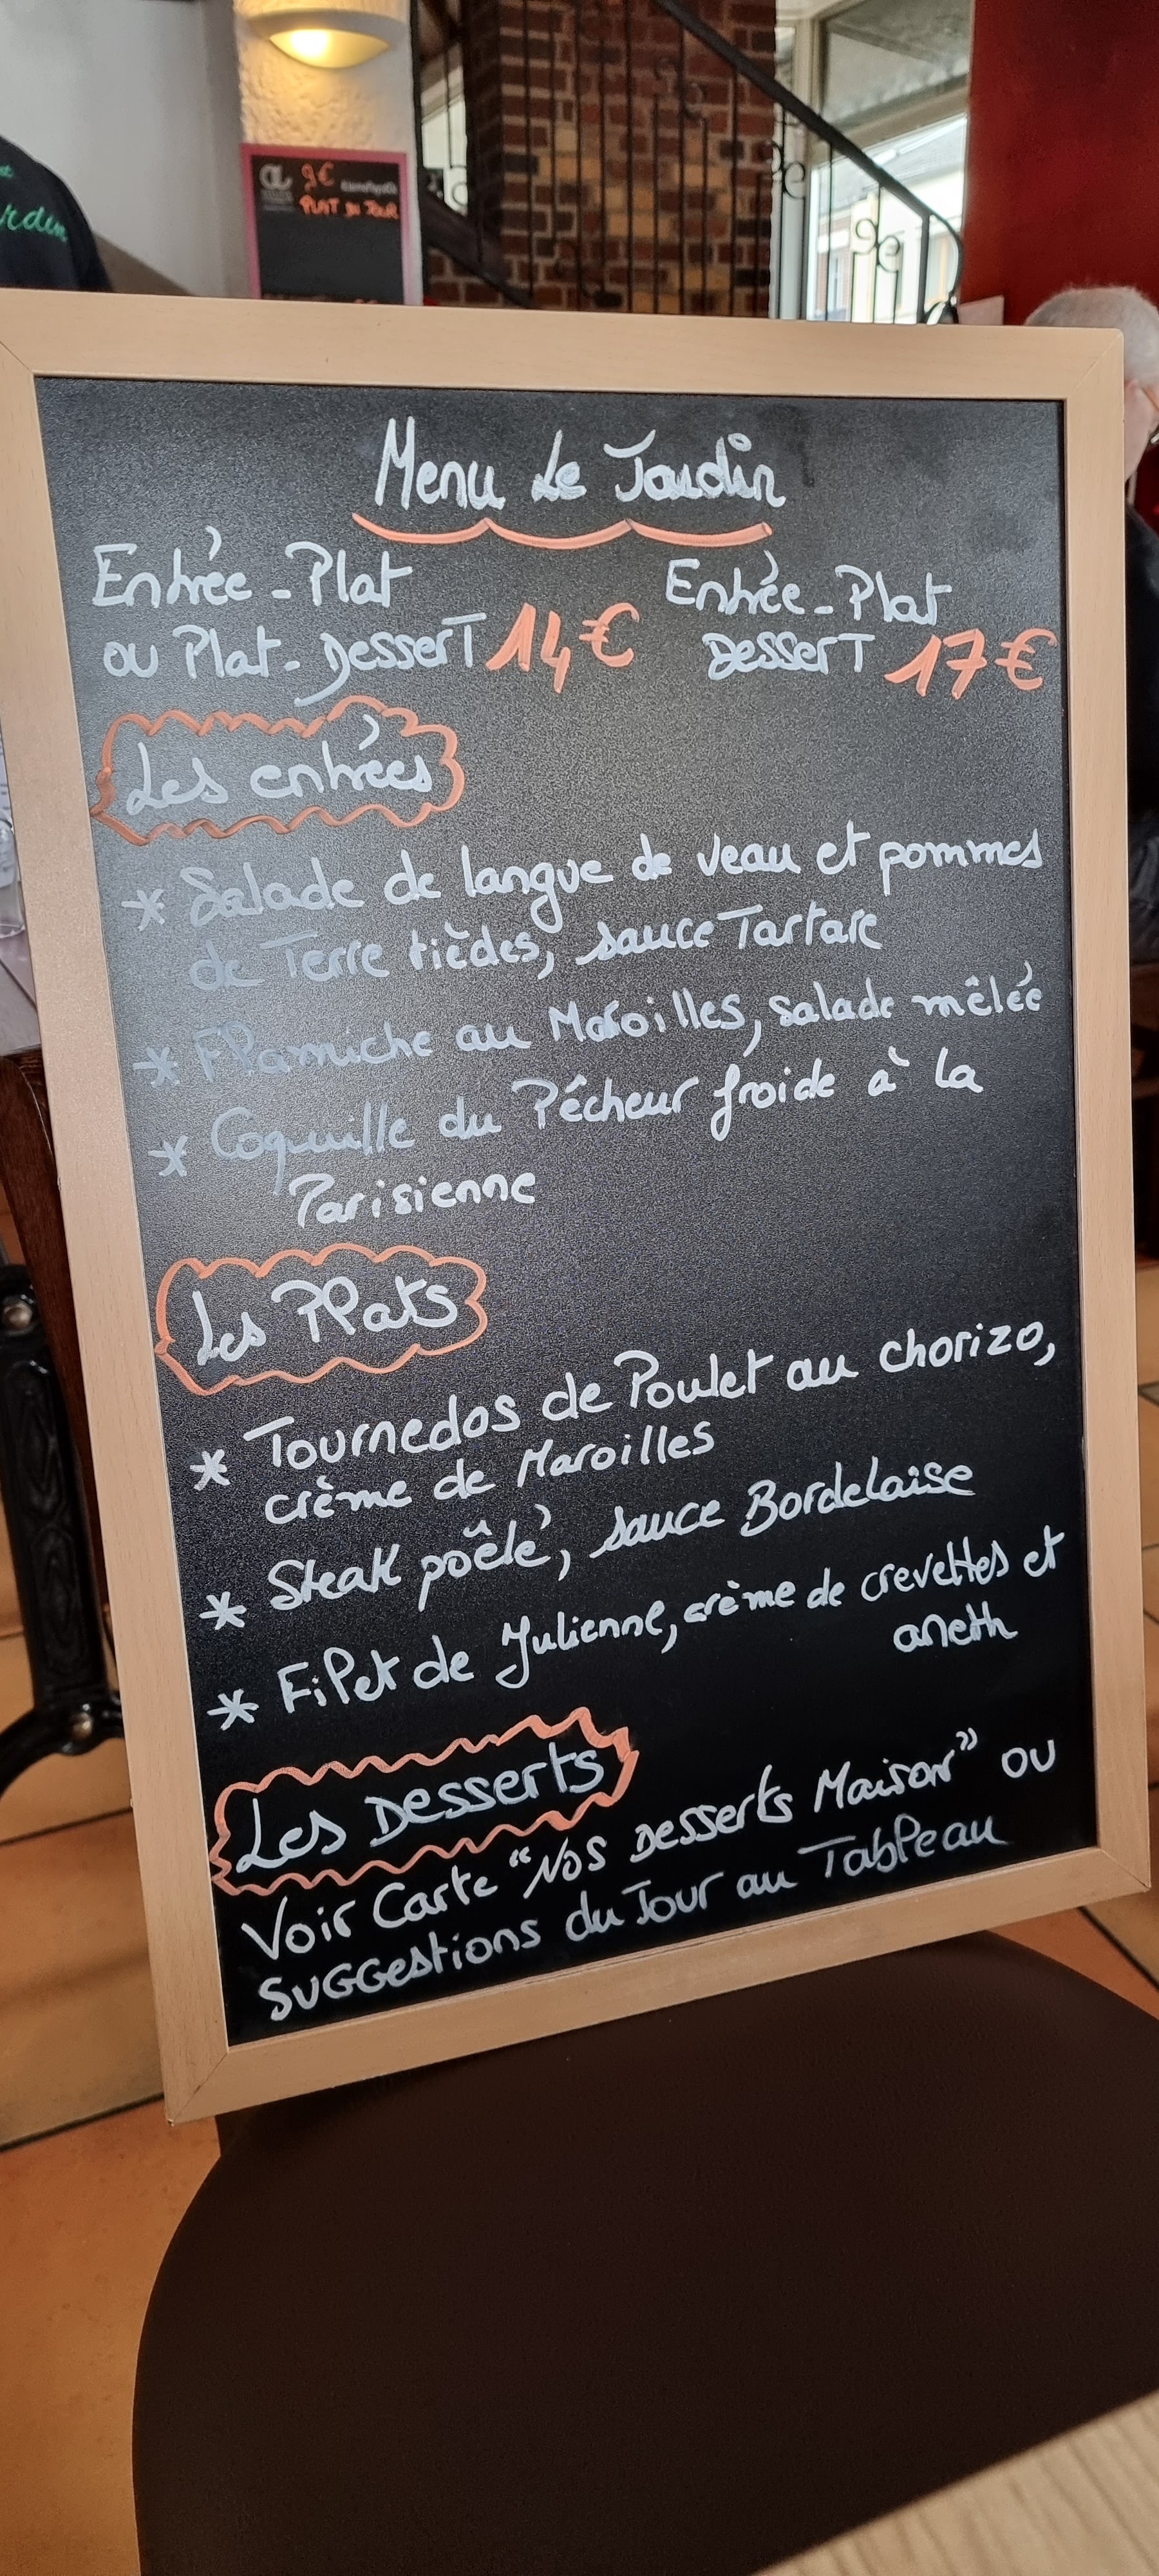 rden
9€
PLAT DU JOUR
Menu Le Jardin
Entrée - Plat
ou Plat - Dessert 14€
Entrée - Plat
Dessert 17€
Les entrées
* Salade de langue de veau et pommes
de Terre tièdes, sauce Tartare
* Flamiche au Maroilles, salade mêlée
* Coquille du Pêcheur froide à la
Parisienne
Les Plats
* Tournedos de Poulet au chorizo,
crème de Maroilles
* Steak poêlé, sauce Bordelaise
* Filet de Julienne, crème de crevettes et
aneth
Les Desserts
Voir Carte "Nos Desserts Maison" ou
Suggestions du Jour au Tableau